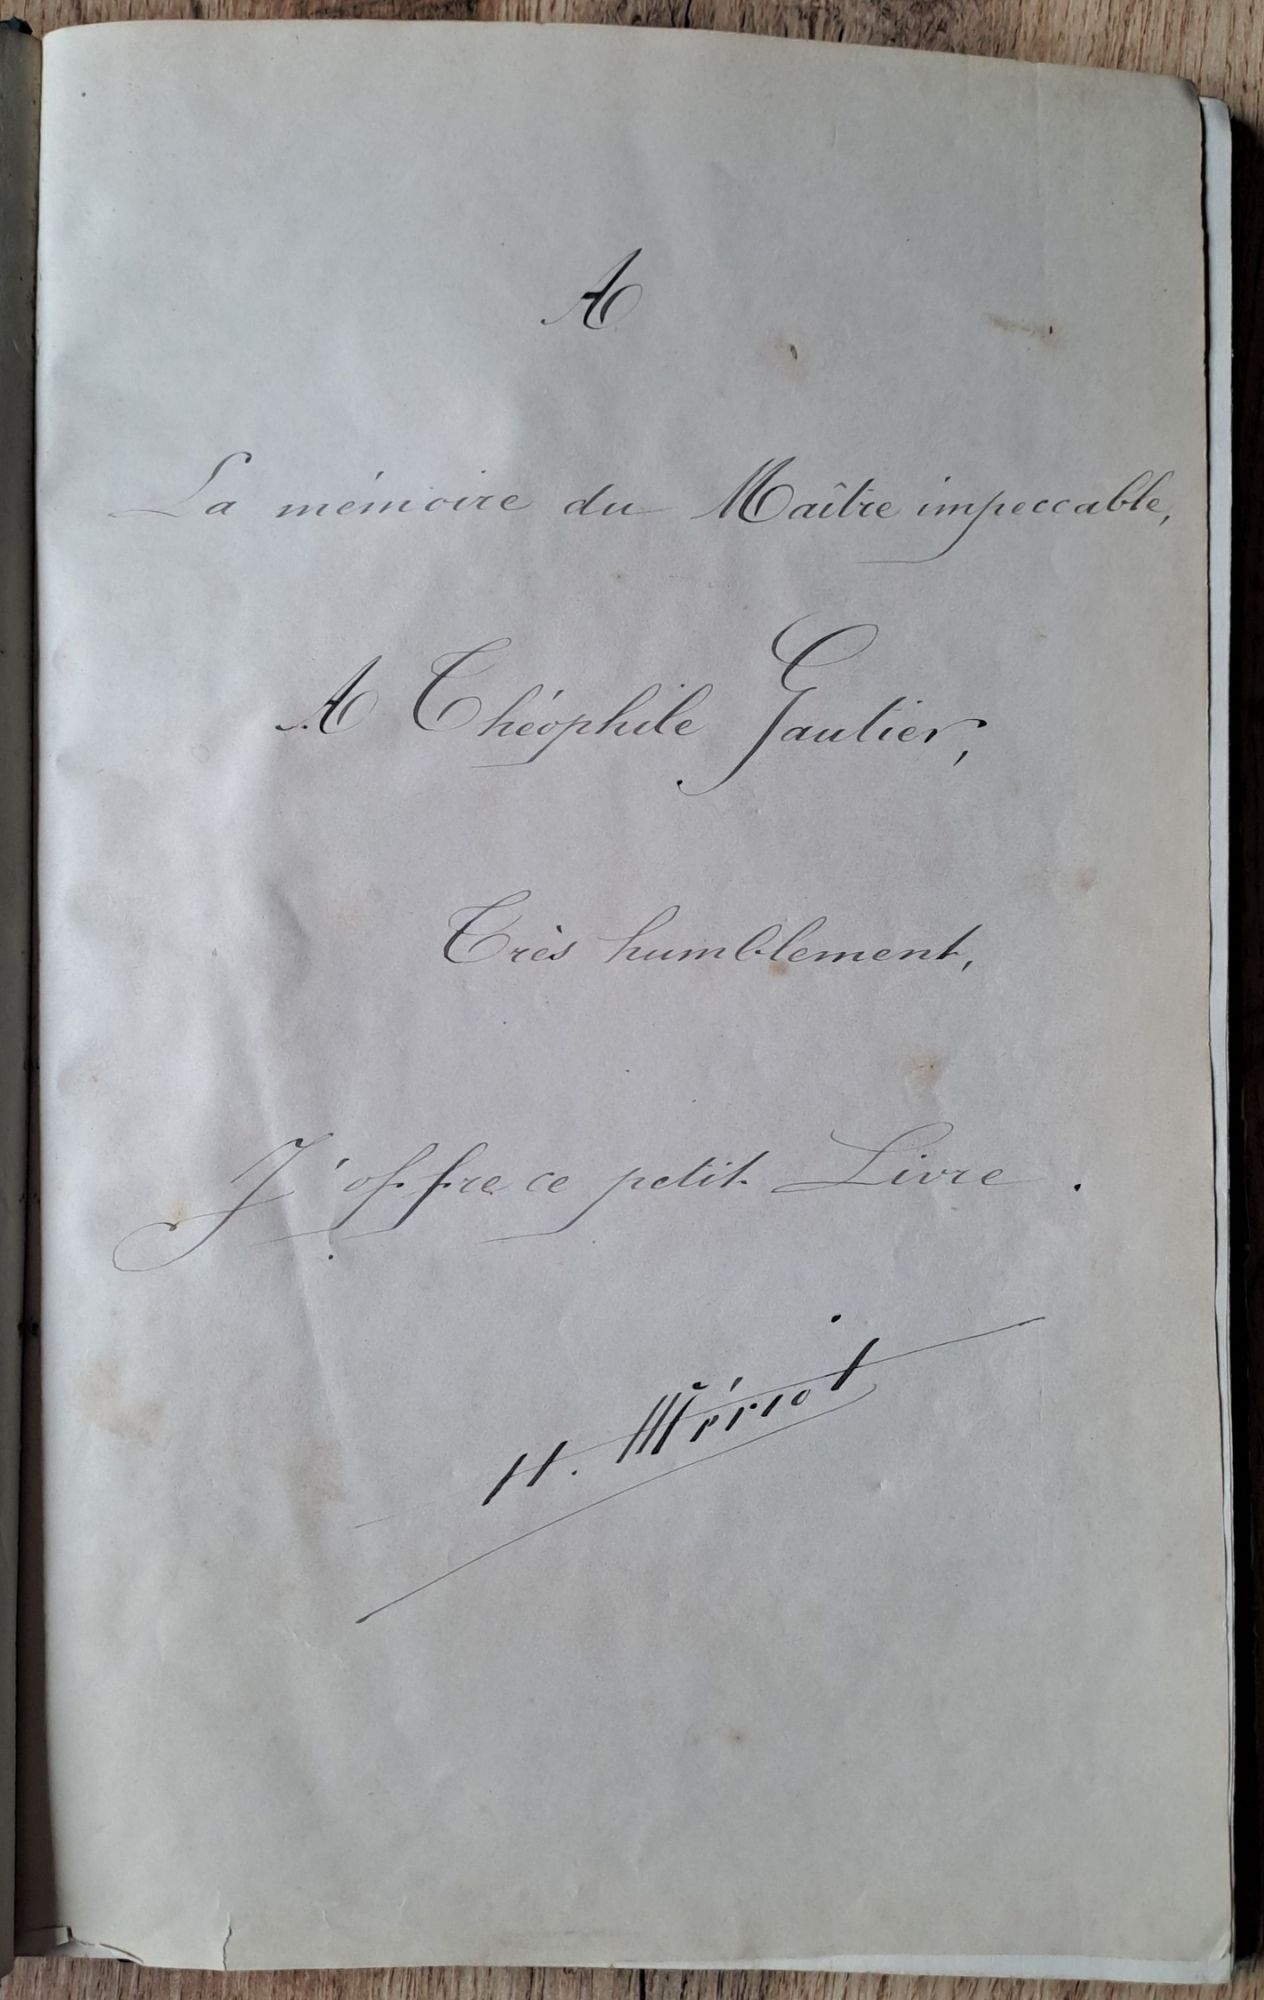 A
La mémoire du Maître impeccable,
A Théophile Gautier,
Très humblement,
J'offre ce petit Livre.
H. Mériot